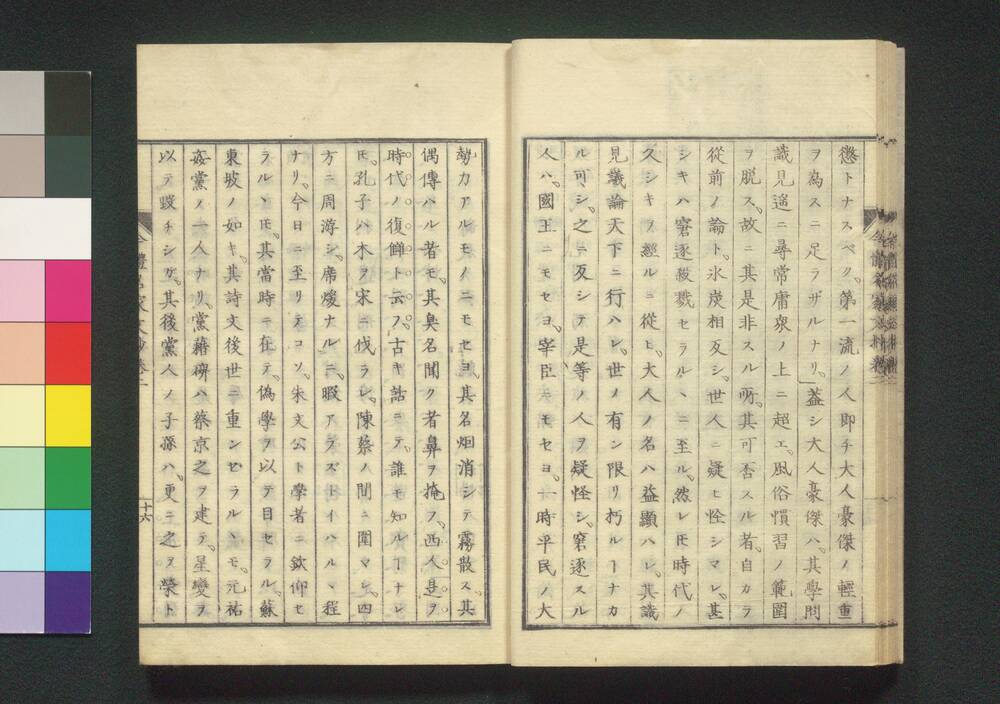 懲トナスベク。第一流ノ人即チ大人豪傑ノ輕重
ヲ為スニ足ラザルナリ。蓋シ大人豪傑ハ。其學問
識見遥ニ尋常庸衆ノ上ニ超エ。風俗慣習ノ範圍
ヲ脱ス。故ニ其是非スル所。其可否スル者。自カラ
從前ノ論ト。氷炭相反シ。世人ニ疑ヒ怪シマレ。甚
シキハ窘逐殺戮セラルヽニ至ル。然レ𪜈時代ノ
久シキヲ經ルニ從ヒ。大人ノ名ハ益顯ハレ。其識
見議論天下ニ行ハレ。世ノ有ン限リ朽ルヿナカ
ル可シ。之ニ反シテ是等ノ人ヲ疑怪シ。窘逐スル
人ハ。國王ニモセヨ。宰臣ニモセヨ。一時平民ノ大
勢力アルモノニモセヨ。其名烟消シテ霧散ス。其
偶傳ハル者モ。其臭名聞ク者鼻ヲ掩フ。西人是ヲ
時代ノ復讎ト云フ。古キ話ニテ。誰モ知ルヿナレ
𪜈。孔子ハ木ヲ宋ニ伐ラレ。陳蔡ノ間ニ圍マレ。四
方ニ周游シ。席煖ナルニ。暇アラズトイハルヽ程
ナリ。今日ニ至リテコソ。朱文公ト學者ニ欽仰セ
ラルヽ𪜈。其當時ニ在テ。偽學ヲ以テ目セラル。蘇
東坡ノ如キ。其詩文後世ニ重ンセラルヽモ。元祐
姦黨ノ一人ナリ。黨藉碑ハ蔡京之ヲ建テ。星變ヲ
以テ毀チシガ。其後黨人ノ子孫ハ。更ニ之ヲ榮ト
十六